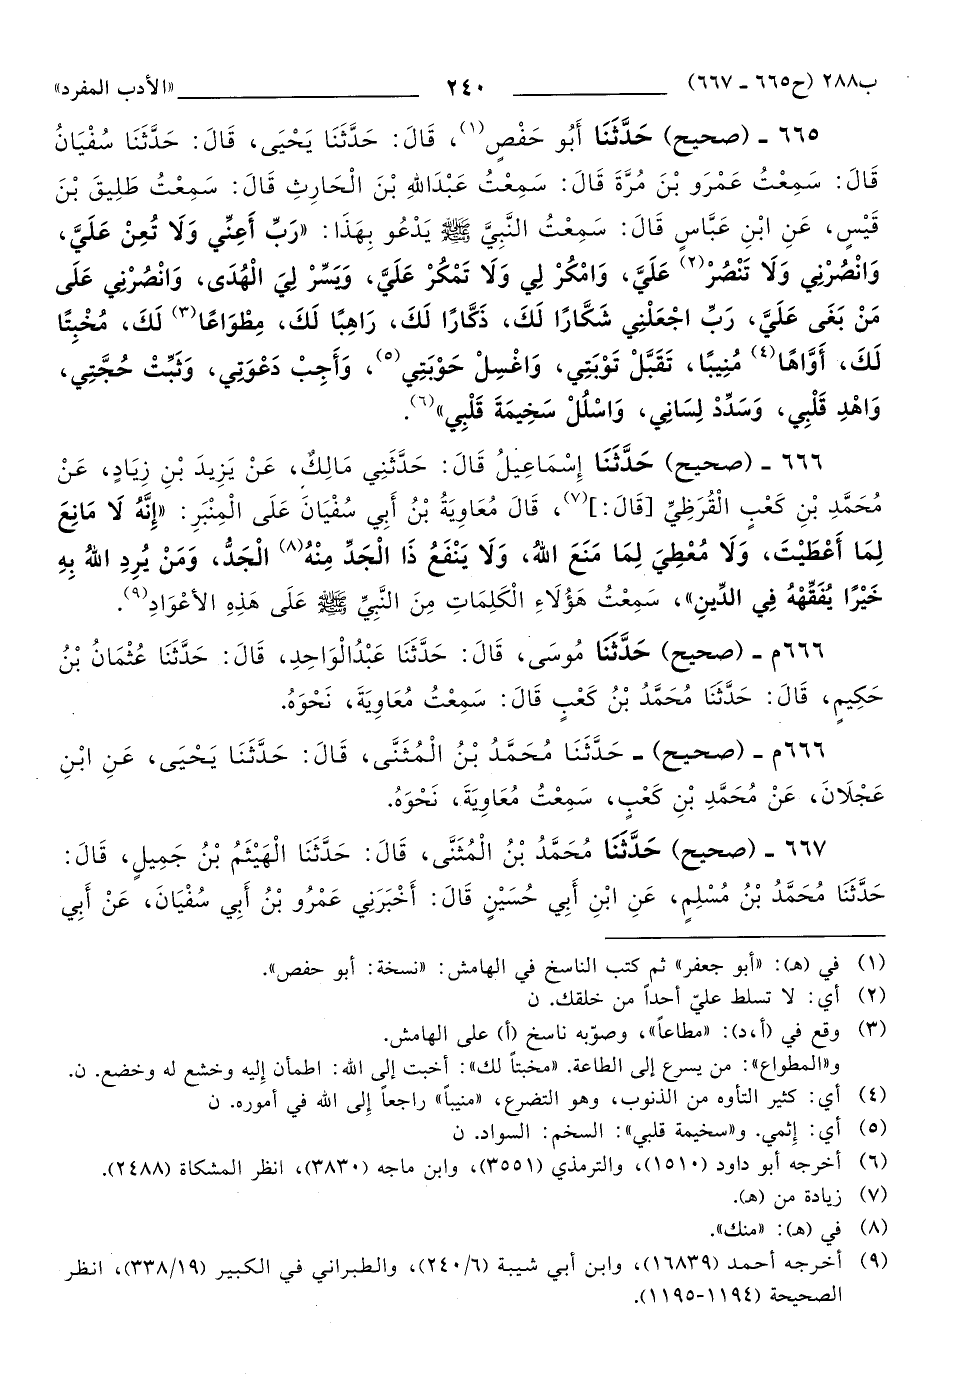 ب٢٨٨ (ح٦٦٥ ـ ٦٦٧) ٢٤٠ «الأدب المفرد»
٦٦٥ ـ (صحيح) حَدَّثَنَا أَبُو حَفْصٍ(١)، قَالَ: حَدَّثَنَا يَحْيَى، قَالَ: حَدَّثَنَا سُفْيَانُ
قَالَ: سَمِعْتُ عَمْرَو بْنَ مُرَّةَ قَالَ: سَمِعْتُ عَبْدَاللهِ بْنَ الْحَارِثِ قَالَ: سَمِعْتُ طَلِيقَ بْنَ
قَيْسٍ، عَنِ ابْنِ عَبَّاسٍ قَالَ: سَمِعْتُ النَّبِيَّ ﷺ يَدْعُو بِهَذَا: «رَبِّ أَعِنِّي وَلَا تُعِنْ عَلَيَّ،
وَانْصُرْنِي وَلَا تَنْصُرْ(٢) عَلَيَّ، وَامْكُرْ لِي وَلَا تَمْكُرْ عَلَيَّ، وَيَسِّرْ لِيَ الْهُدَى، وَانْصُرْنِي عَلَى
مَنْ بَغَى عَلَيَّ، رَبِّ اجْعَلْنِي شَكَّارًا لَكَ، ذَكَّارًا لَكَ، رَاهِبًا لَكَ، مِطْوَاعًا(٣) لَكَ، مُخْبِتًا
لَكَ، أَوَّاهًا(٤) مُنِيبًا، تَقَبَّلْ تَوْبَتِي، وَاغْسِلْ حَوْبَتِي(٥)، وَأَجِبْ دَعْوَتِي، وَثَبِّتْ حُجَّتِي،
وَاهْدِ قَلْبِي، وَسَدِّدْ لِسَانِي، وَاسْلُلْ سَخِيمَةَ قَلْبِي»(٦).
٦٦٦ ـ (صحيح) حَدَّثَنَا إِسْمَاعِيلُ قَالَ: حَدَّثَنِي مَالِكٌ، عَنْ يَزِيدَ بْنِ زِيَادٍ، عَنْ
مُحَمَّدِ بْنِ كَعْبٍ الْقُرَظِيِّ [قَالَ:](٧)، قَالَ مُعَاوِيَةُ بْنُ أَبِي سُفْيَانَ عَلَى الْمِنْبَرِ: «إِنَّهُ لَا مَانِعَ
لِمَا أَعْطَيْتَ، وَلَا مُعْطِيَ لِمَا مَنَعَ اللهُ، وَلَا يَنْفَعُ ذَا الْجَدِّ مِنْهُ(٨) الْجَدُّ، وَمَنْ يُرِدِ اللهُ بِهِ
خَيْرًا يُفَقِّهْهُ فِي الدِّينِ»، سَمِعْتُ هَؤُلَاءِ الْكَلِمَاتِ مِنَ النَّبِيِّ ﷺ عَلَى هَذِهِ الأَعْوَادِ(٩).
٦٦٦م ـ (صحيح) حَدَّثَنَا مُوسَى، قَالَ: حَدَّثَنَا عَبْدُالْوَاحِدِ، قَالَ: حَدَّثَنَا عُثْمَانُ بْنُ
حَكِيمٍ، قَالَ: حَدَّثَنَا مُحَمَّدُ بْنُ كَعْبٍ قَالَ: سَمِعْتُ مُعَاوِيَةَ، نَحْوَهُ.
٦٦٦م ـ (صحيح) ـ حَدَّثَنَا مُحَمَّدُ بْنُ الْمُثَنَّى، قَالَ: حَدَّثَنَا يَحْيَى، عَنِ ابْنِ
عَجْلَانَ، عَنْ مُحَمَّدِ بْنِ كَعْبٍ، سَمِعْتُ مُعَاوِيَةَ، نَحْوَهُ.
٦٦٧ ـ (صحيح) حَدَّثَنَا مُحَمَّدُ بْنُ الْمُثَنَّى، قَالَ: حَدَّثَنَا الْهَيْثَمُ بْنُ جَمِيلٍ، قَالَ:
حَدَّثَنَا مُحَمَّدُ بْنُ مُسْلِمٍ، عَنِ ابْنِ أَبِي حُسَيْنٍ قَالَ: أَخْبَرَنِي عَمْرُو بْنُ أَبِي سُفْيَانَ، عَنْ أَبِي
(١) في (هـ): «أبو جعفر» ثم كتب الناسخ في الهامش: «نسخة: أبو حفص».
(٢) أي: لا تسلط عليّ أحداً من خلقك. ن
(٣) وقع في (أ،د): «مطاعاً»، وصوّبه ناسخ (أ) على الهامش.
و«المطواع»: من يسرع إلى الطاعة. «مخبتاً لك»: أخبت إلى الله: اطمأن إليه وخشع له وخضع. ن.
(٤) أي: كثير التأوه من الذنوب، وهو التضرع، «منيباً» راجعاً إلى الله في أموره. ن
(٥) أي: إثمي. و«سخيمة قلبي»: السخم: السواد. ن
(٦) أخرجه أبو داود (١٥١٠)، والترمذي (٣٥٥١)، وابن ماجه (٣٨٣٠)، انظر المشكاة (٢٤٨٨).
(٧) زيادة من (هـ).
(٨) في (هـ): «منك».
(٩) أخرجه أحمد (١٦٨٣٩)، وابن أبي شيبة (٢٤٠/٦)، والطبراني في الكبير (٣٣٨/١٩)، انظر
الصحيحة (١١٩٤-١١٩٥).